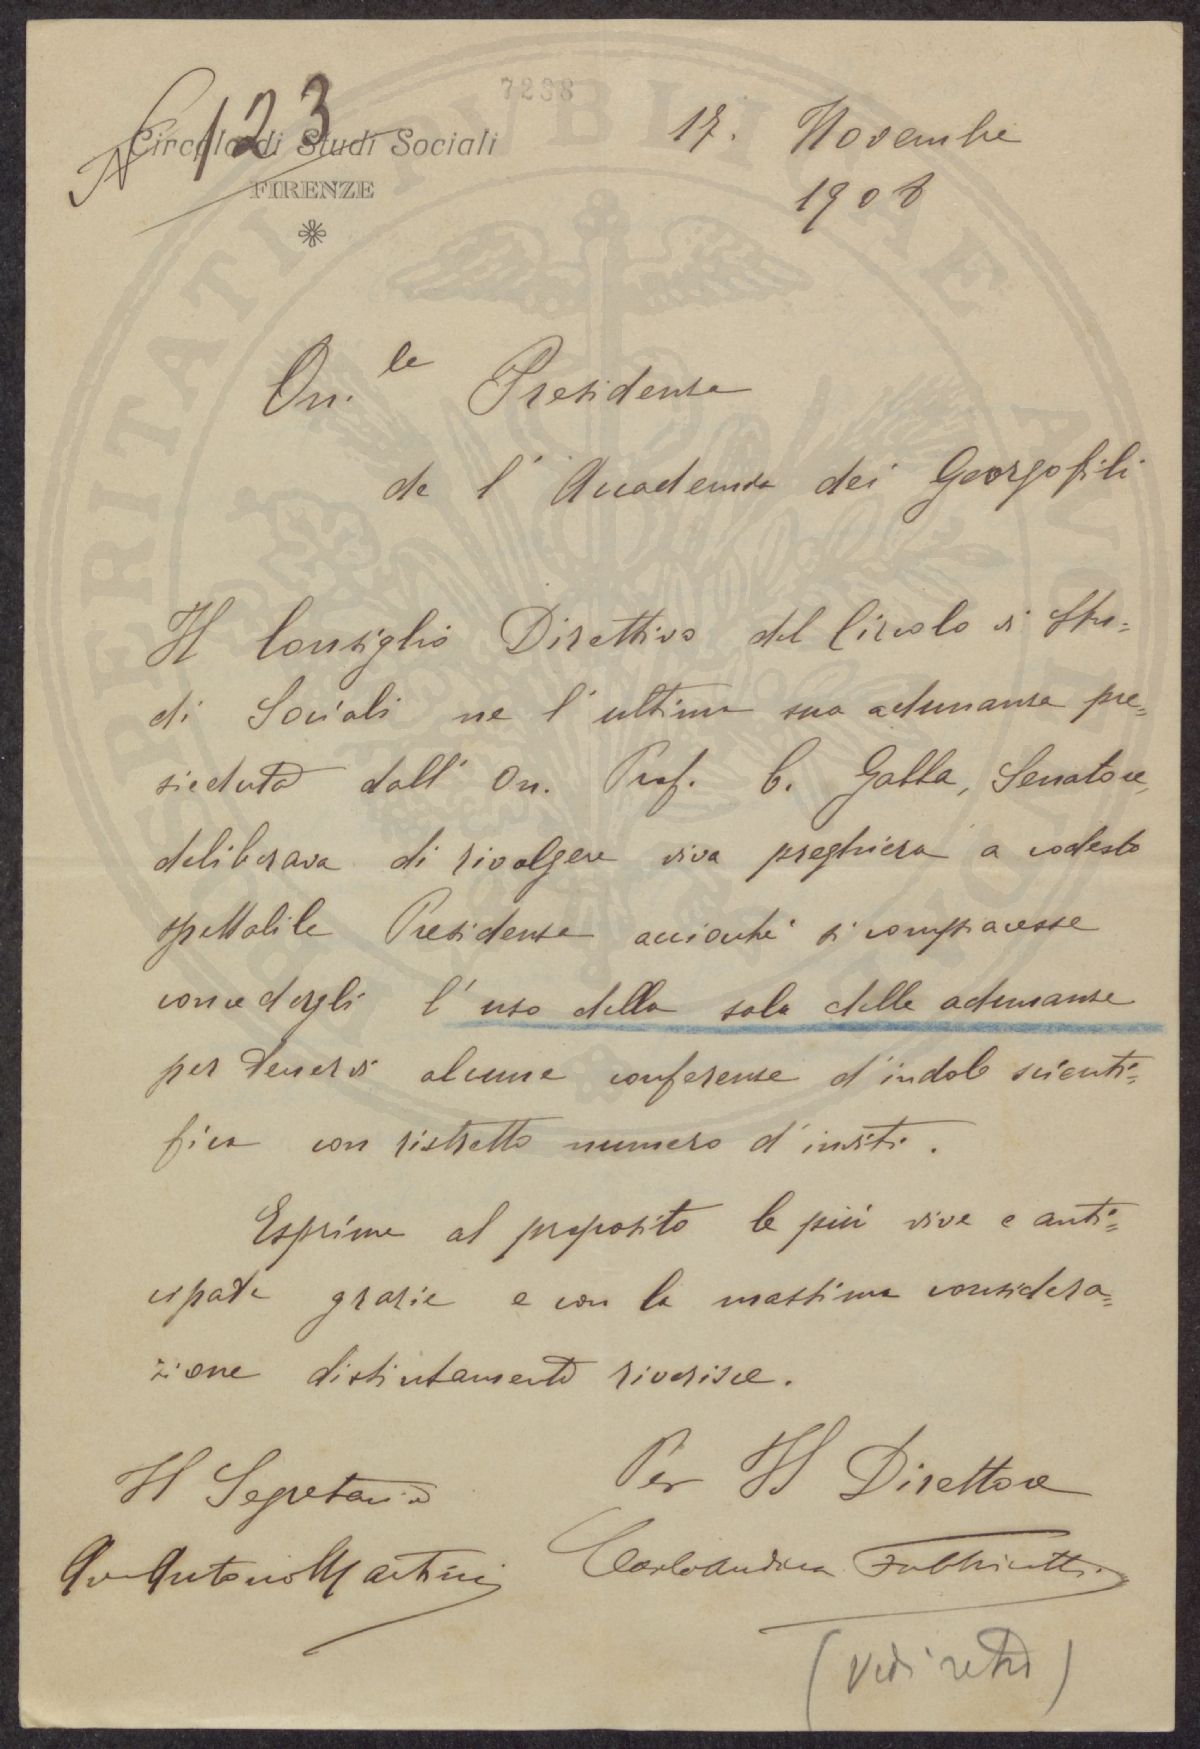 7238
N 123
Circolo di Studi Sociali
FIRENZE
17. Novembre
1908
On.le Presidenza
de l'Accademia dei Georgofili
Il Consiglio Direttivo del Circolo di Stu=
di Sociali ne l'ultima sua adunanza pre=
sieduta dall'On. Prof. C. Gabba, Senatore,
deliberava di rivolgere viva preghiera a codesta
spettabile Presidenza acciocché si compiacesse
concedergli l'uso della sala delle adunanze
per tenervi alcune conferenze d'indole scienti=
fica con ristretto numero d'inviti.
Esprime al proposito le più vive e anti=
cipate grazie e con la massima considera=
zione distintamente riverisce.
Il Segretario
Avv Antonio Martini
Per Il Direttore
Carlo Andrea Fabbricotti
(Vedi retro)
PROSPERITATI PUBLICAE AUGENDAE